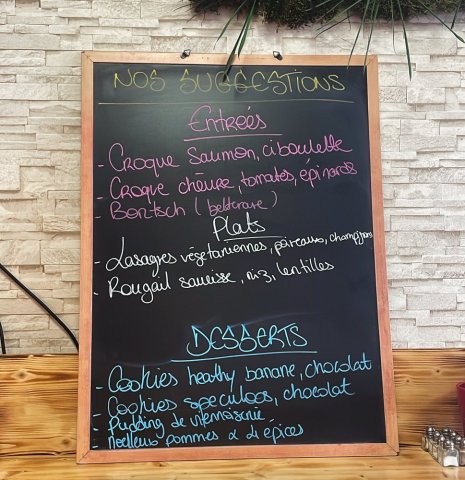 NOS SUGGESTIONS
Entreés
- Croque Saumon, ciboulette
- Croque chèvre, tomates, épinards
- Bortsch (betterave)
Plats
- Lasagnes végétariennes, poireaux, champignons
- Rougail saucisse, riz, lentilles
DESSERTS
- Cookies healthy banane, chocolat
- Cookies speculoos, chocolat
- Pudding de viennoiserie
- Moelleux pommes & 4 épices